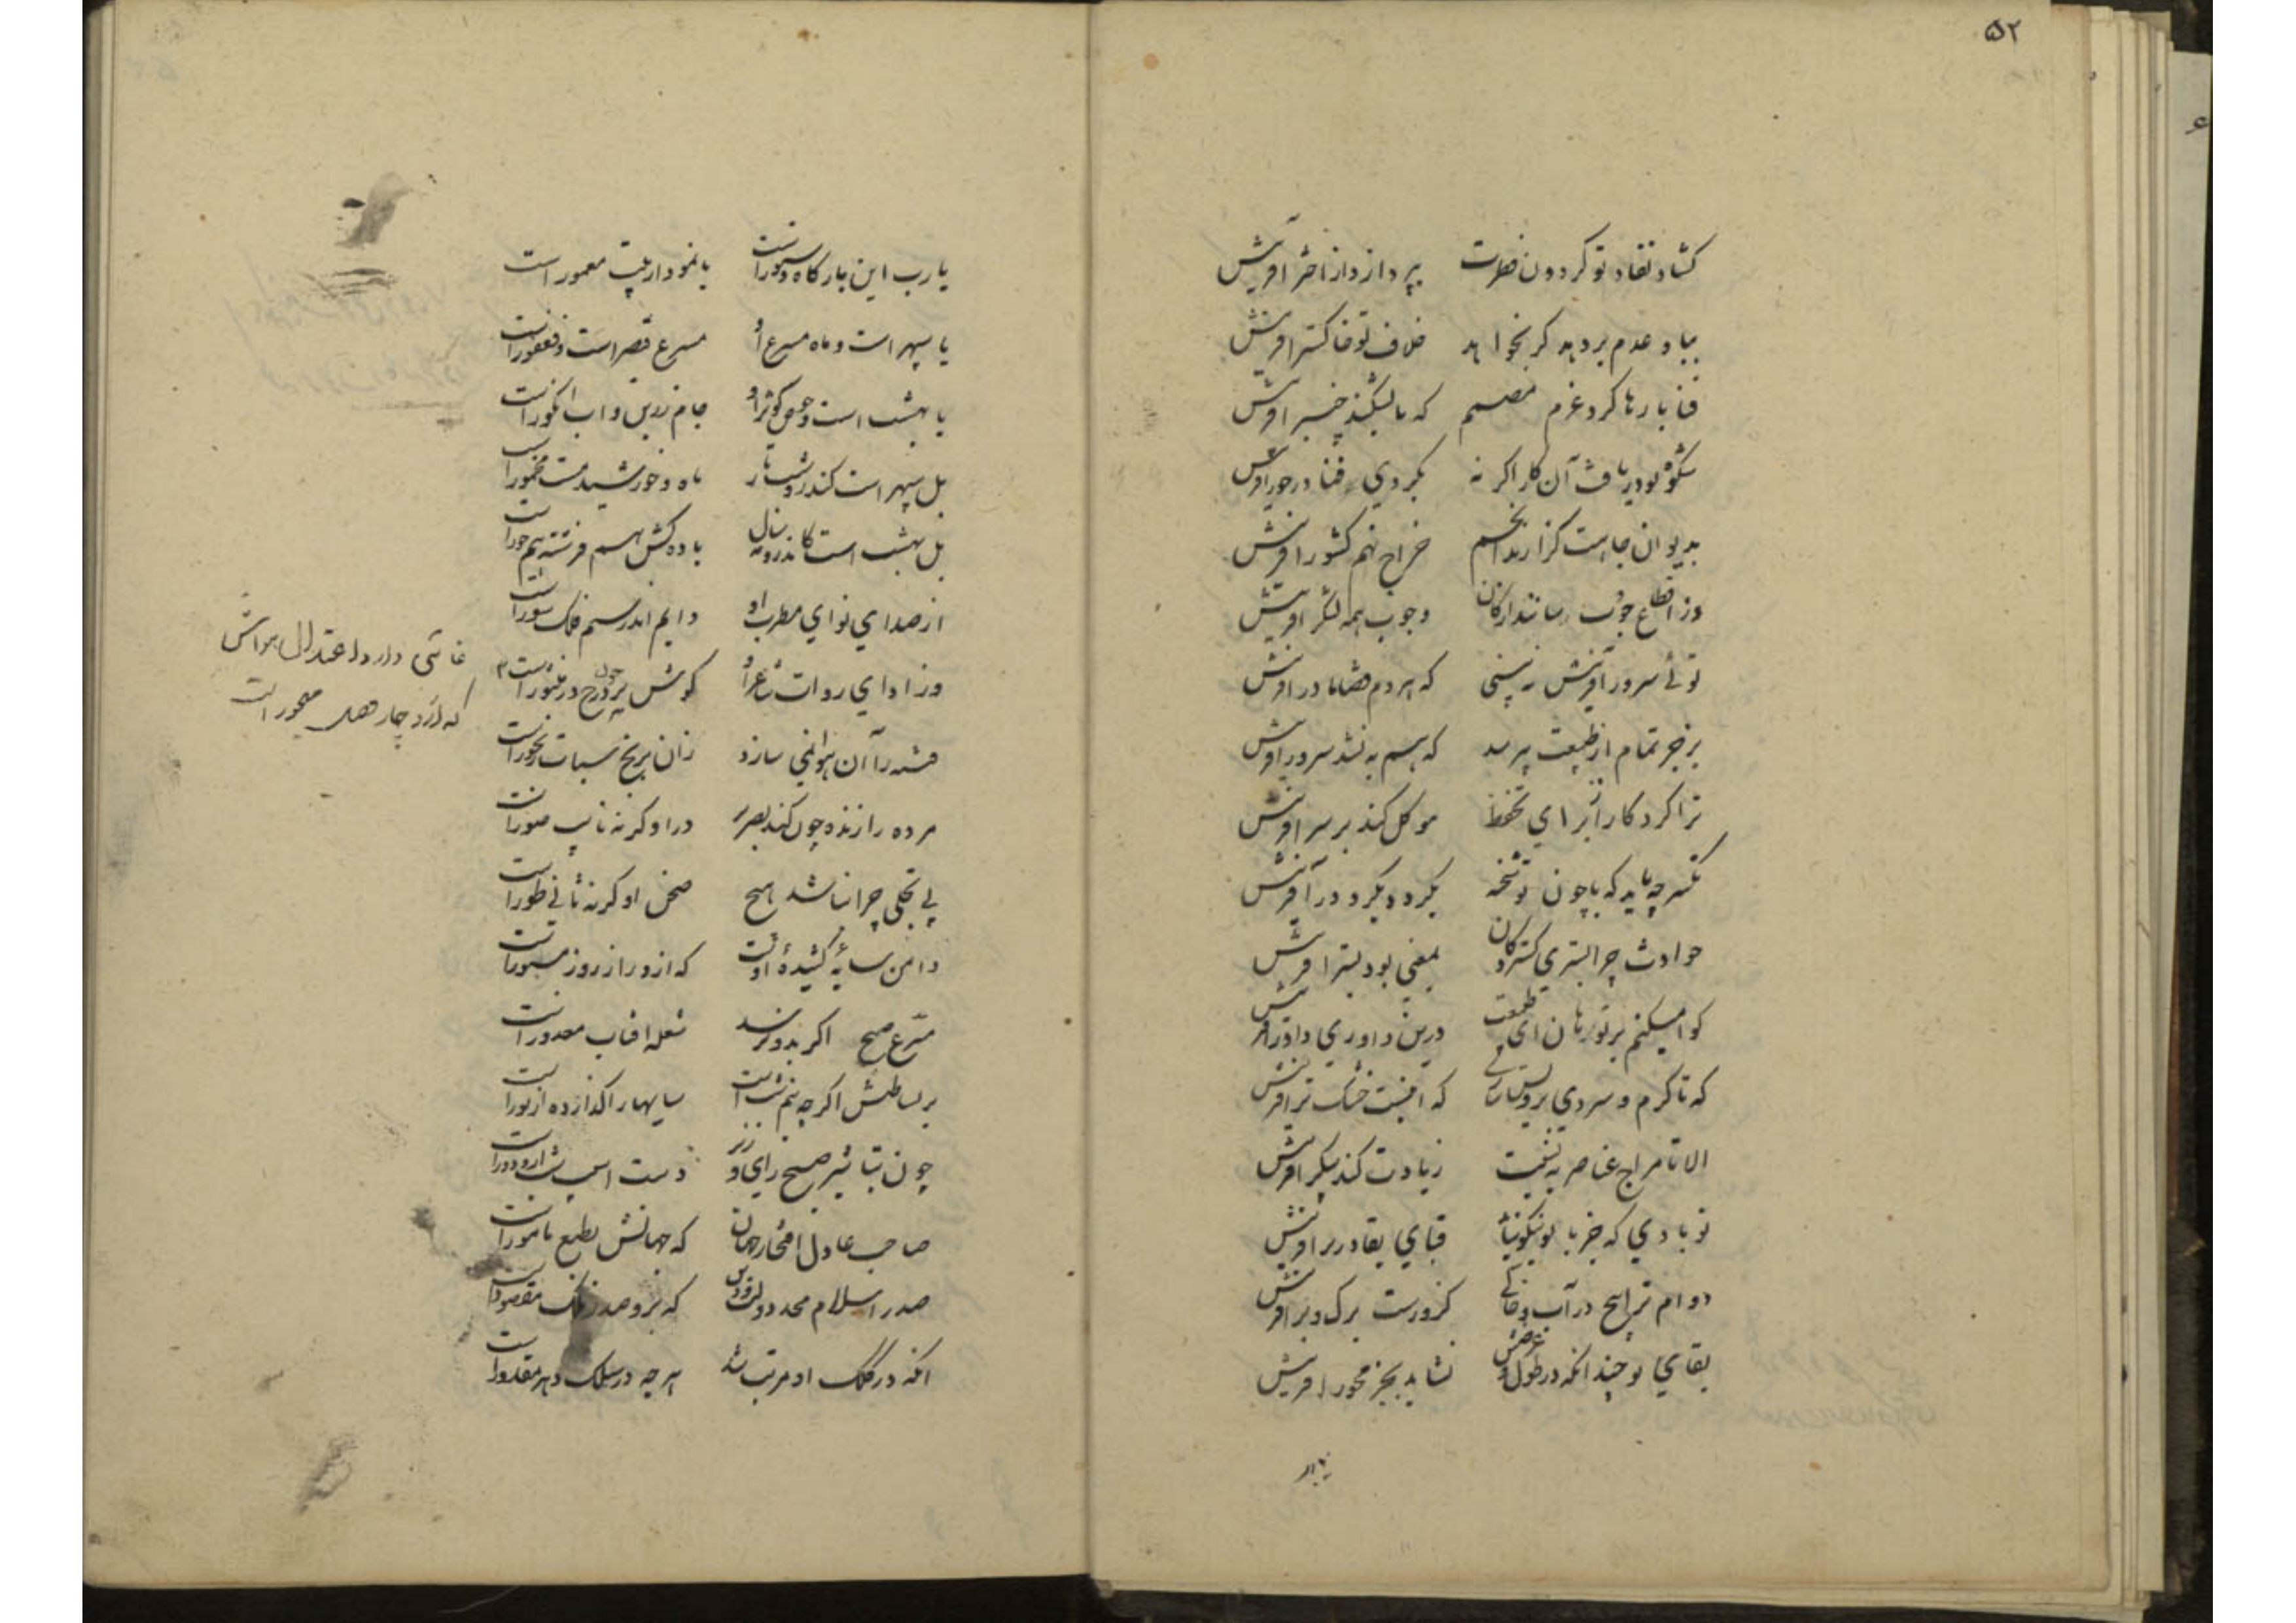 ۵۲
کشاد نفاد تو کردون فطرت بپردازد از اختر افرینش
بباد عدم بر دهد کر نخواهد خلاف تو خاکستر افرینش
قضا بارها کرد عزم مصمم که تا بشکند چنبر افرینش
شکوه تو دریافت آن کار اکر نه بکردی فنا در خور افرینش
بدیوان جاهت کزارند انجم خراج نهم کشور افرینش
وز اقطاع جودت رسانند ارکان وجوب همه لشکر افرینش
توئی سرور آفرینش نه بینی که هردم مادر افرینش
تمام از طبیعت بپرسد که هم به نشد سرور افرینش
ترا کردکار از برای تحفظ موکل کند بر سر افرینش
نکه چه باید که با چون تو شحنه بکرد و بکرد در آفرینش
حوادث چرا بستری کسترد کان بمعنی بود بستر افرینش
کواه میکنم بر تو هان ای طبیعت درین داوری داور افرینش
که تا کرم و سردی برویش نیاری که اینست خشک و تر افرینش
الا تا مزاج عناصر به نسبت زیادت کند پیکر افرینش
تو بادی که جز با تو نیکو نیاید قبای بقا در بر افرینش
دوام ترا بیخ در آب و خاکی کزو رست برک و بر افرینش
بقای تو چندانکه در طول و عرضش نشاید بجز محور افرینش
یارب
یارب این بارکاه دستورست یا نمودار بیت معمورست
یا سپهر است و ماه مسرع او مسرع قیصر است و فغفورست
یا بهشت است و حوض کوثر او جام زرین و اب انکورست
بل سپهر است کندرو شب تار ماه و خورشید مست مخمورست
بل بهشت است کاندرو مه و سال باده کش هم فرشته هم حورست
از صدای نوای مطرب او دایم اندر سم فلک سورست
وز ادای روات شاعر او کوش چون پر ز درج در منثورست
فتنه را آن هوا نمی سازد زان برنج سبات رنجورست
مرده را زنده چون کند بصریر در او کرنه نایب صورست
بی تجلی چرا نباشد هیچ صحن او کرنه ثانی طورست
دامن سایه کشیدهٔ اوست که ازو راز روز مستورست
مسرع صبح اکر بدو نرسد شعله افتاب معذورست
بر بساطش اکرچه نیم شب است سایها را کذاره از نورست
چون تباشیر صبح رای وزیر دست اسیب شب ازو دورست
صاحب عادل افتخار جهان که جهانش بطبع مامورست
صدر اسلام مجد دولت و دین که برو صدر ملک مقصورست
انکه در کلک او مرتب شد هرچه در سلک دهر مقدورست
غایتی دارد اعتدال هواش
که ازو چار فصل مهجور است